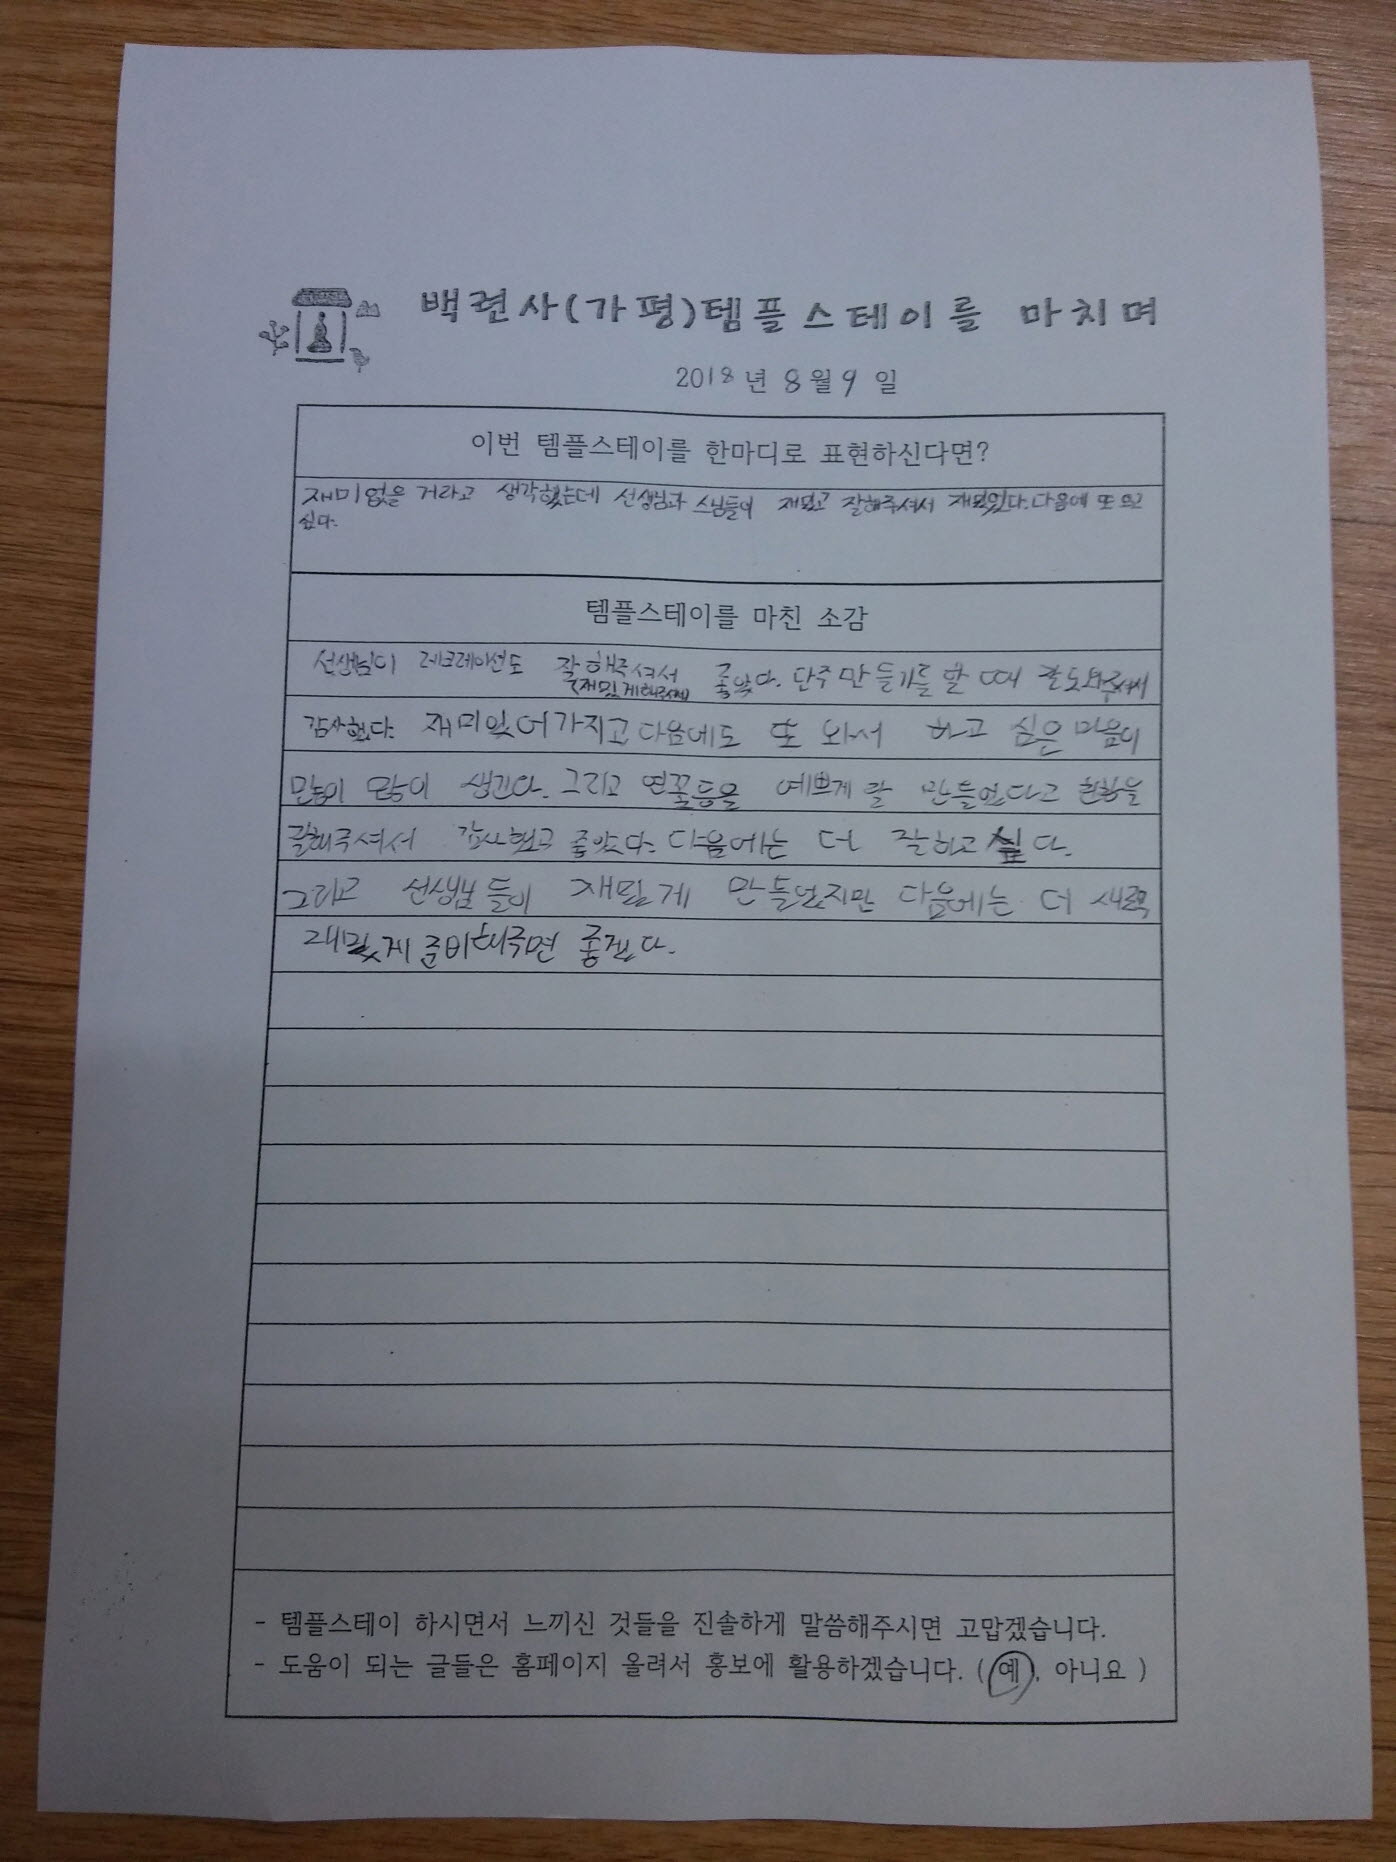 백련사(가평)템플스테이를 마치며
2018년 8월 9일
이번 템플스테이를 한마디로 표현하신다면?
재미없을 거라고 생각했는데 선생님과 스님들이 재밌고 잘해주셔서 재밌있다. 다음에 또 오고
싶다.
템플스테이를 마친 소감
선생님이 레크레이션도 잘해주셔서 좋았다. 단주만들기를 할 때 잘도와주셔서
(재밌게해주셔서)
감사했다. 재미있어가지고 다음에도 또 와서 하고 싶은 마음이
많이 많이 생긴다. 그리고 연꽃등을 예쁘게 잘 만들었다고 칭찬을
잘해주셔서 감사했고 좋았다. 다음에는 더 잘하고 싶다.
그리고 선생님들이 재밌게 만들었지만 다음에는 더
재밌게 준비해주면 좋겠다.
- 템플스테이 하시면서 느끼신 것들을 진솔하게 말씀해주시면 고맙겠습니다.
- 도움이 되는 글들은 홈페이지 올려서 홍보에 활용하겠습니다. ( 예, 아니요 )